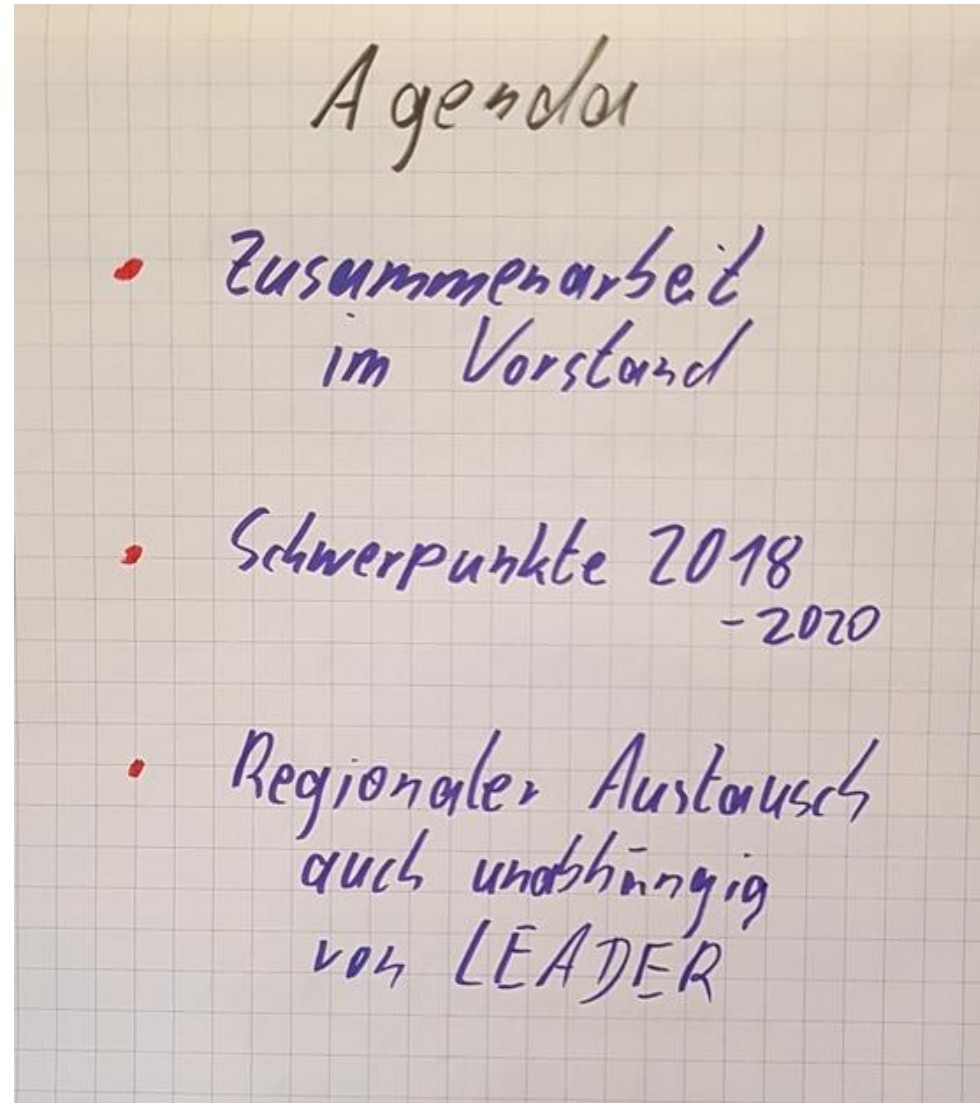 Agenda
Zusammenarbeit
im Vorstand
Schwerpunkte 2018
- 2020
Regionaler Austausch
auch unabhängig
von LEADER